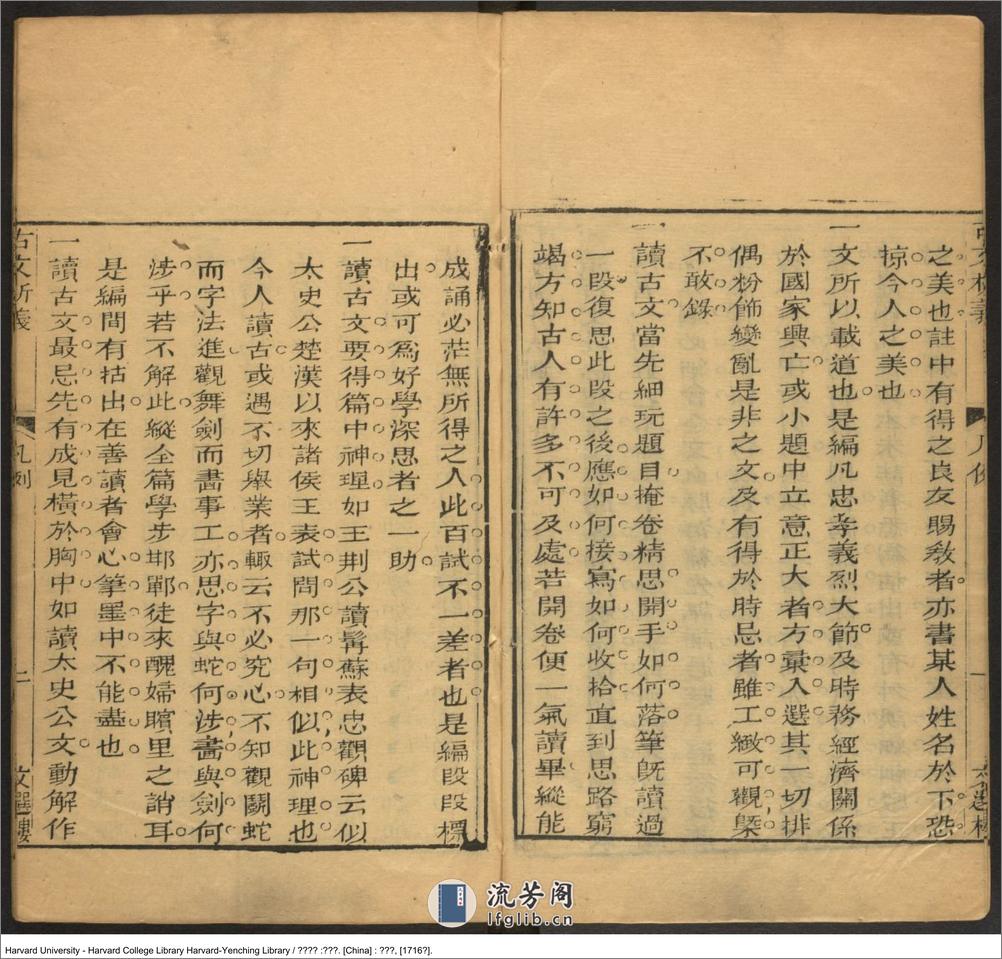 之美也註中有得之良友賜教者亦書某人姓名於下恐
掠今人之美也
一文所以載道也是編凡忠孝義烈大節及時務經濟關係
於國家興亡或小題中立意正大者方彙入選其一切排
偶粉飾變亂是非之文及有得於時忌者雖工緻可觀槩
不敢錄
一讀古文當先細玩題目掩卷精思開手如何落筆旣讀過
一段復思此段之後應如何接寫如何收拾直到思路窮
竭方知古人有許多不可及處若開卷便一氣讀畢縱能
成誦必茫無所得之人此百試不一差者也是編段段標
出或可爲好學深思者之一助
一讀古文要得篇中神理如王荆公讀髯蘇表忠觀碑云似
太史公楚漢以來諸侯王表試問那一句相似此神理也
今人讀古或遇不切舉業者輙云不必究心不知觀鬪蛇
而字法進觀舞劍而畵事工亦思字與蛇何涉畵與劍何
涉乎若不解此縱全篇學步邯鄲徒來醜婦矉里之誚耳
是編間有拈出在善讀者會心筆墨中不能盡也
一讀古文最忌先有成見橫於胸中如讀太史公文動解作
古文析義
凡例
二
文選樓
流芳阁
lfglib.cn
Harvard University - Harvard College Library Harvard-Yenching Library / ???? :???. [China] : ???, [1716?].